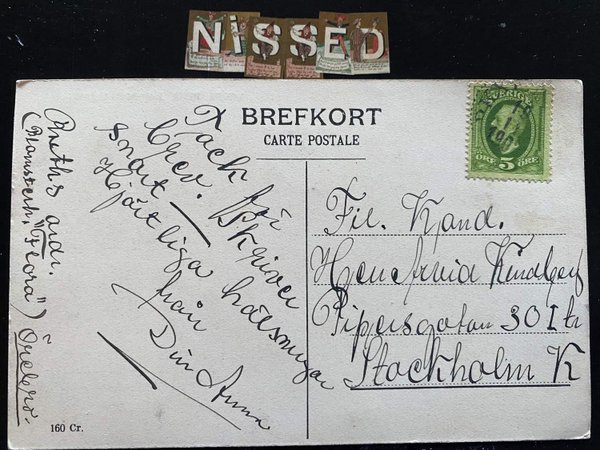 NiSSED
BREFKORT
CARTE POSTALE
SVERIGE
ÖRE 5 ÖRE
Tack för
brev. Skriver
snart —
Hjärtliga hälsningar
från
Din Anna
adr.
(Blomsterh. "Flora") Örebro.
Fil. Kand.
Kindberg
Pipersgatan 30 I tr
Stockholm K
160 Cr.